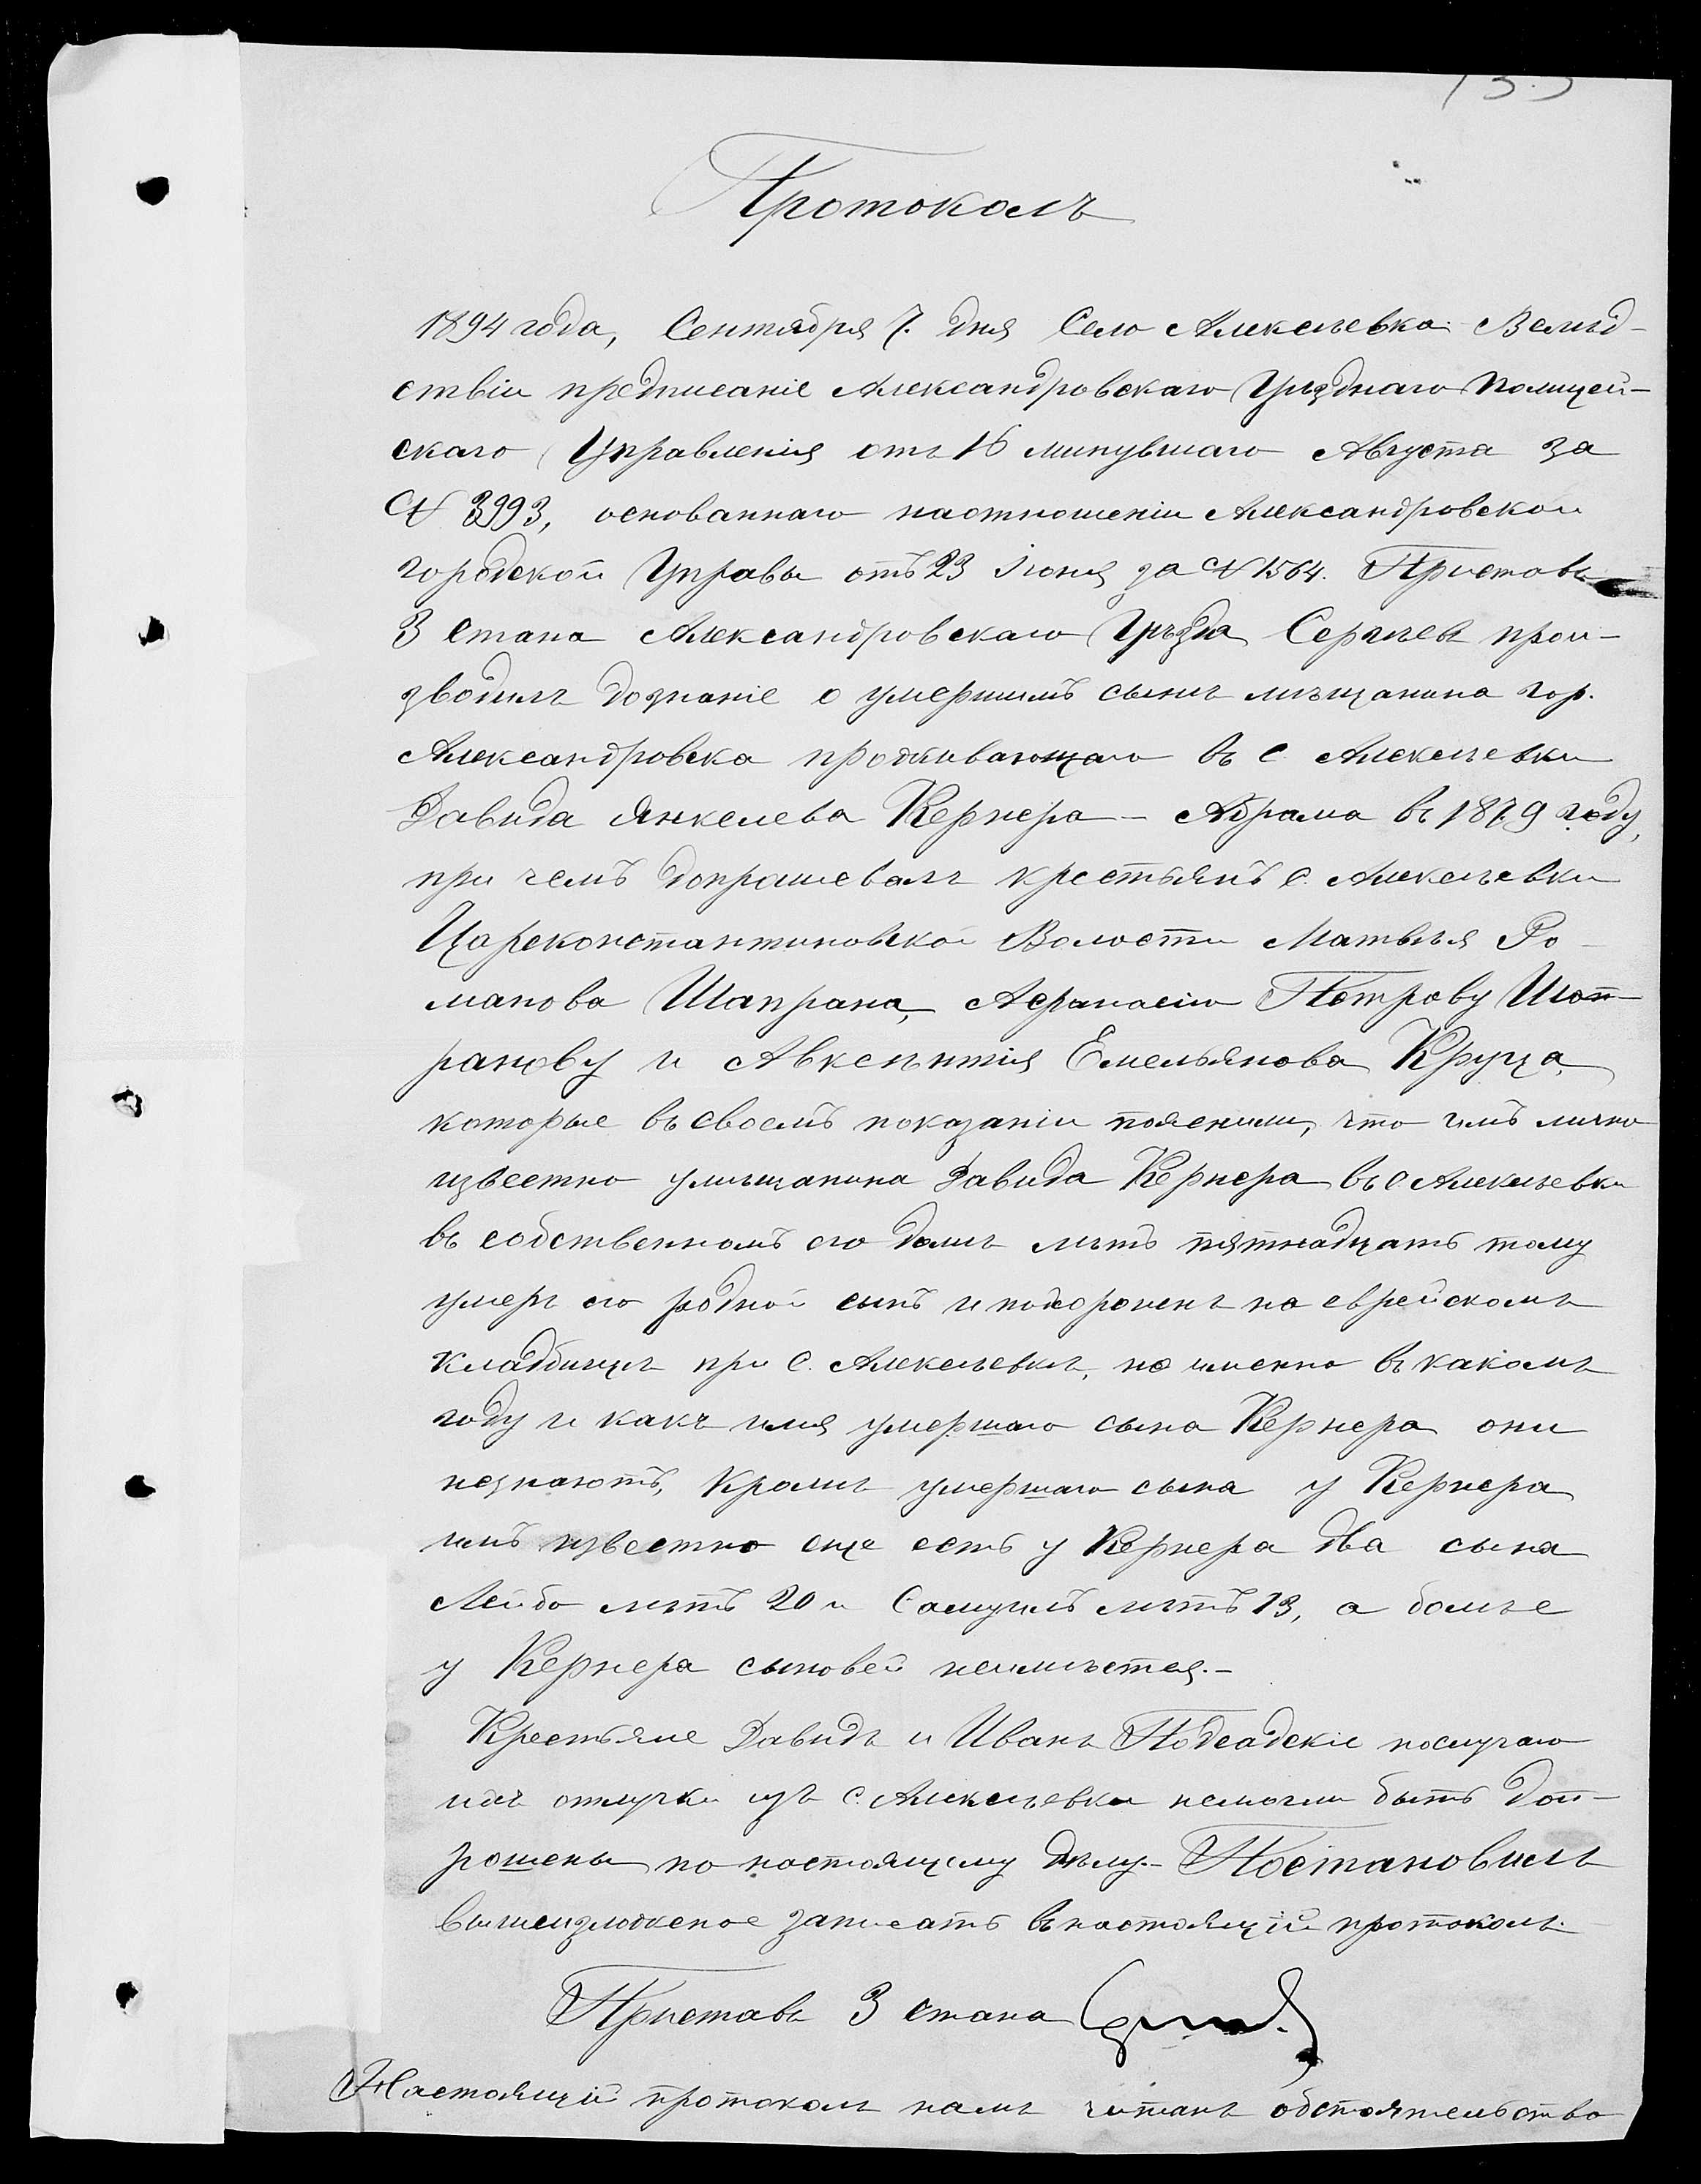 Протоколъ
1894 года, Сентября 7. дня Село Алексѣевка Вслѣд-
ствіи предписаніе Александровскаго Уѣзднаго Полицей-
скаго Управленія отъ 16 минувшаго Августа за
№ 3993, основаннаго наотношеніи Александровской
городской Управы отъ 23 Іюня за № 1564. Приставъ
3 стана Александровскаго Уѣзда Сергѣевъ прои-
зводилъ дознаніе о умершимъ сынѣ мѣщанина гор.
Александровска проживающаго въ с. Алексѣевки
Давида Янкелева Кернера - Абрама въ 1879 году,
при чемъ допрашевалъ крестьянъ с. Алексѣевки
Цареконстантиновской Волости Матвѣя Ро-
манова Шапрана, Афанасію Петрову Шап-
ранову и Авксентія Емельянова Круца,
которые въ своемъ показаніи пояснили, что имъ лично
известно умѣщанина Давида Кернера въ с. Алексѣевки
въ собственномъ его домѣ лѣтъ пятнадцать тому
умеръ его родной сынъ и похороненъ на еврейскомъ
кладбищѣ при с. Алексѣевкѣ, но именно въ какомъ
году и какъ имя умершаго сына Кернера они
незнаютъ, Кромѣ умершаго сына у Кернера
имъ извеетно еще есть у Кернера два сына
Лейба лѣтъ 20 и Самуилъ лѣтъ 13, а более
у Кернера сыновей неимѣется.-
Крестьяне Давидъ и Иванъ Подсадскіе послучаю
ихъ отлучки изъ с. Алексѣевки немогли быть доп-
рошены по настоящему дѣлу.- Постановилъ
вышеизложеное записать въ настоящій протоколъ.
Приставъ 3 стана
Настоящій протоколъ намъ читанъ обстоятельство